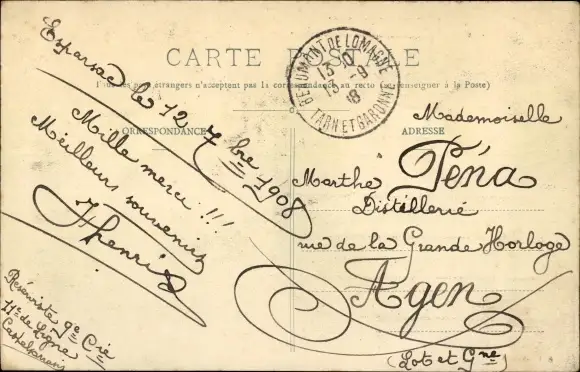 CARTE POSTALE
Tous les pays étrangers n'acceptent pas la correspondance au recto (se renseigner à la Poste)
CORRESPONDANCE
ADRESSE
BEAUMONT DE LOMAGNE
13 -9
TARN ET GARONNE
Esparsac le 12 7bre 1908
Mille merci !!!
Meilleurs souvenirs
Réserviste 9e Cie
11e de Ligne
Castelsarrasin
Mademoiselle
Marthe Péna
Distillerie
rue de la Grande Horloge
Agen
(Lot et Gne)